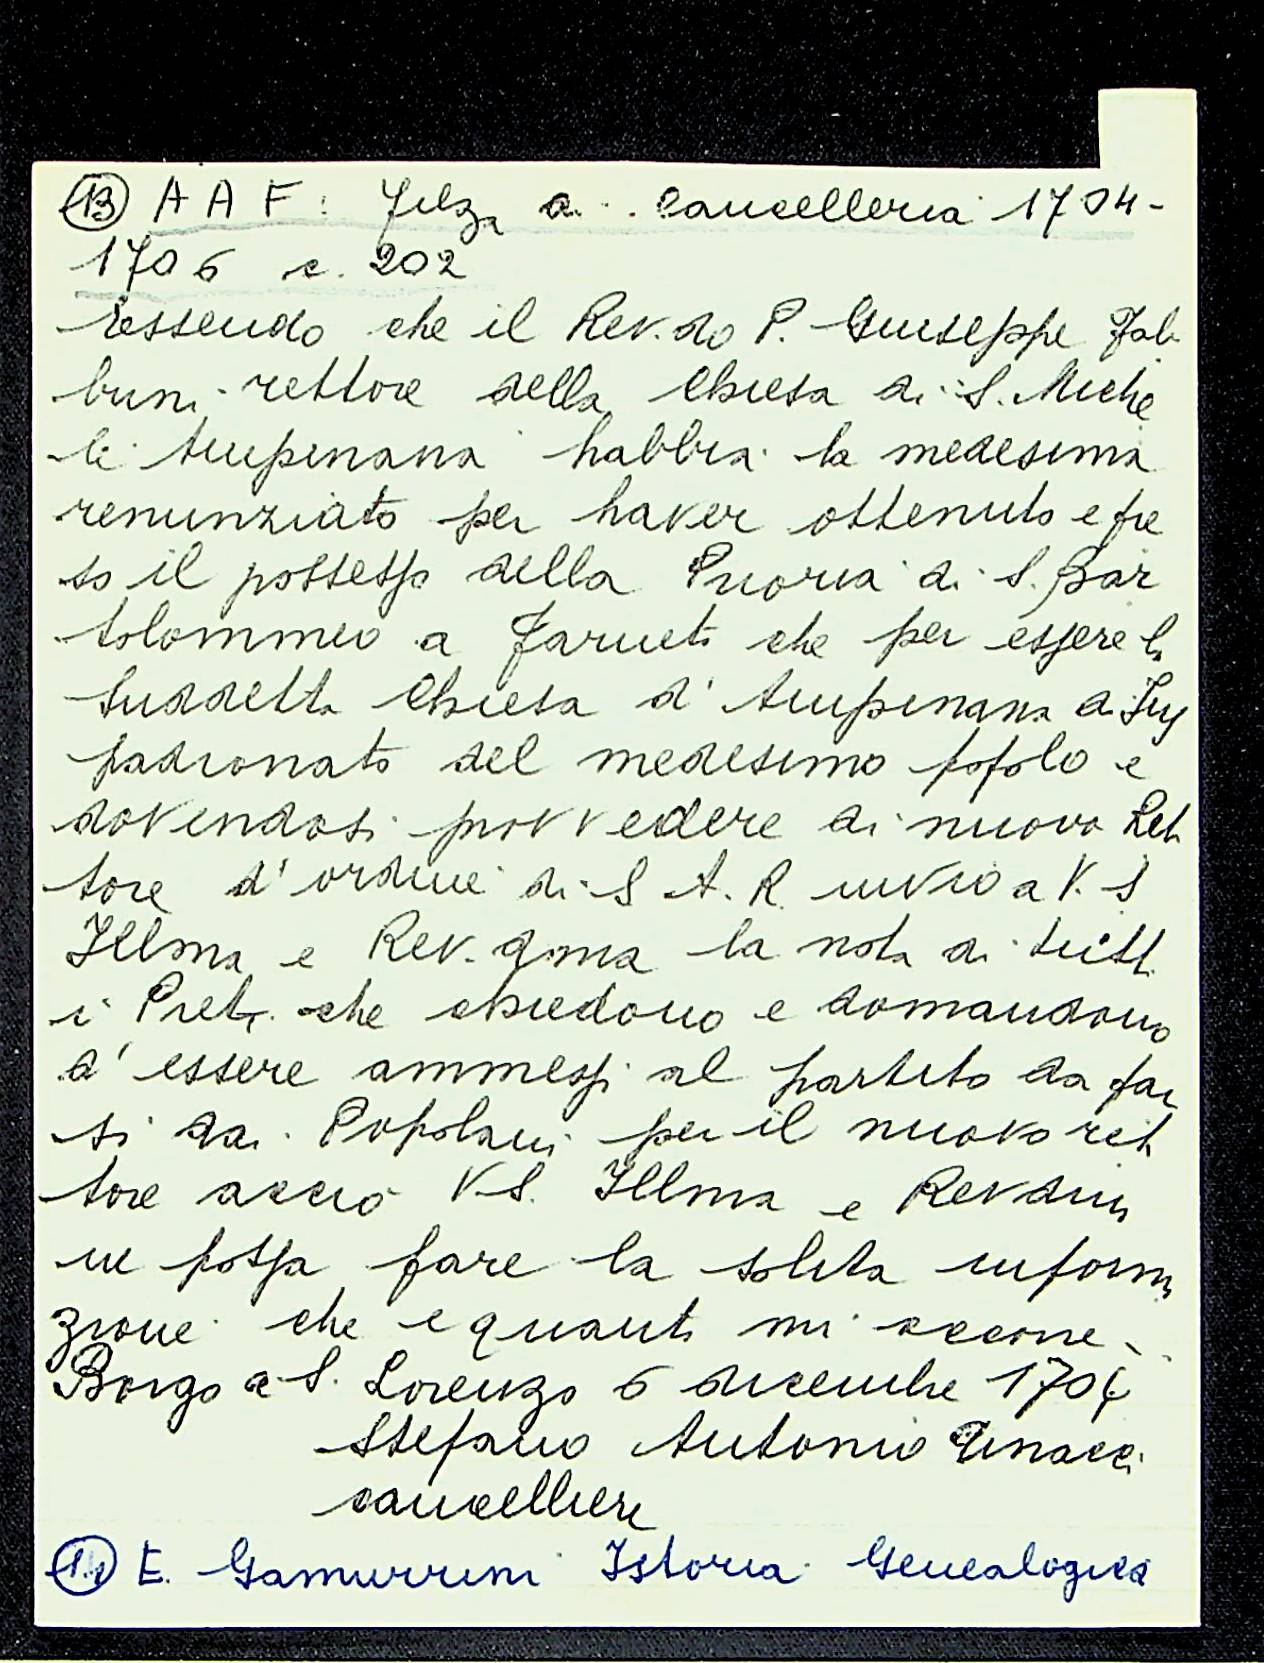 (13) A A F: Filza di Cancelleria 1704-
1706 c. 202
essendo che il Rev.do P. Giuseppe Fab
brini rettore della Chiesa di S. Miche
le Ampinana habbia la medesima
renunziato per haver ottenuto e pre
so il possesso della Prioria di S. Bar
tolommeo a Farneto che per essere la
suddetta Chiesa d'Ampinana di Jus
padronato del medesimo popolo e
dovendosi provvedere di nuovo Ret
tore d'ordine di S A. R. invio a V. S
Illma e Rev.dma la nota di tutti
i Preti che chiedono e domandono
d'essere ammessi al partito da far
si dai Popolani per il nuovo ret
tore acciò V.S. Illma e Revdim
ne possa fare la solita informa
zione che e quanto mi occorre.
Borgo a S. Lorenzo 6 dicembre 1704
Stefano Antonio
cancelliere
(14) E. Gamurrini Istoria Genealogica